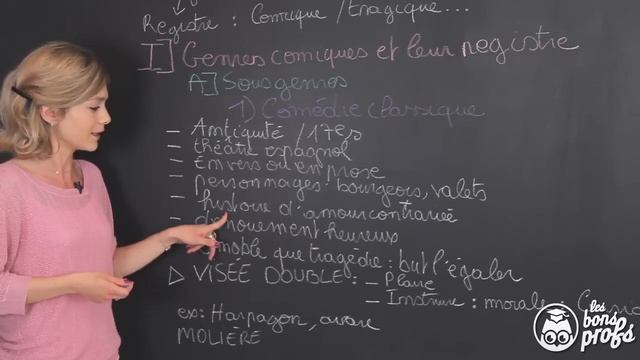 Registre : Comique / tragique...
I] Genres comiques et leur registre
A] Sous genres
1) Comédie classique
- Antiquité / 17e s
- théâtre espagnol
- En vers ou en prose
- personnages : bourgeois, valets
- histoire d'amour contrariée
- dénouement heureux
noble que tragédie : but l'égaler
▷ VISÉE DOUBLE : - Plaire
- Instruire : morale :
ex : Harpagon, avare
MOLIÈRE
les bons profs